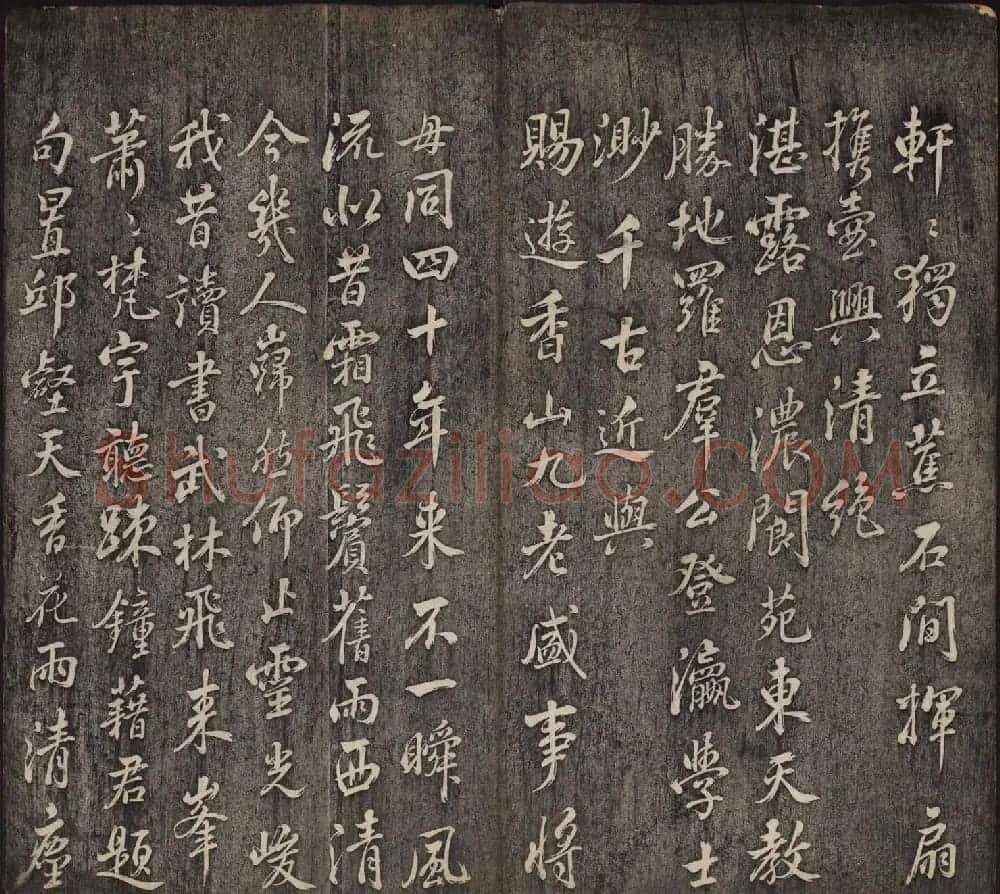 軒〻獨立蕉石間揮扇
攜壺興清絶
湛露恩濃閬苑東天教
勝地羅羣公登瀛學士
渺千古近與
賜遊香山九老盛事將
毋同四十年来不一瞬風
流似昔霜飛鬢舊雨西清
今幾人巋然仰止靈光峻
我昔讀書武林飛来峯
蕭〻梵宇聽踈鐘藉君題
句置邱壑天香花雨清塵
shufaziliao.com